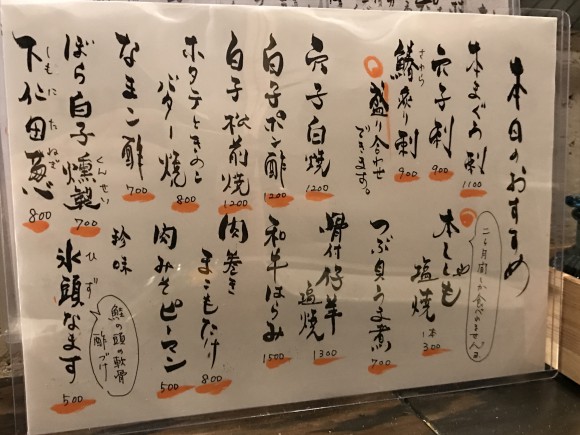 本日のおすすめ
本まぐろ刺
1100
穴子刺
900
さわら
鰆炙り刺
900
盛り合わせ
できます。
穴子白焼
1200
白子ポン酢
1200
白子松前焼
1200
ホタテときのこ
バター焼
800
なまこ酢
700
くんせい
ぼら白子燻製
700
しもにたねぎ
下仁田葱
800
本ししゃも
塩焼
1本
300
つぶ貝うま煮
700
骨付仔羊
塩焼
1300
和牛はらみ
1500
肉巻き
まこもたけ
800
肉みそピーマン
500
珍味
ひず
氷頭なます
500
鮭の頭の軟骨
酢づけ